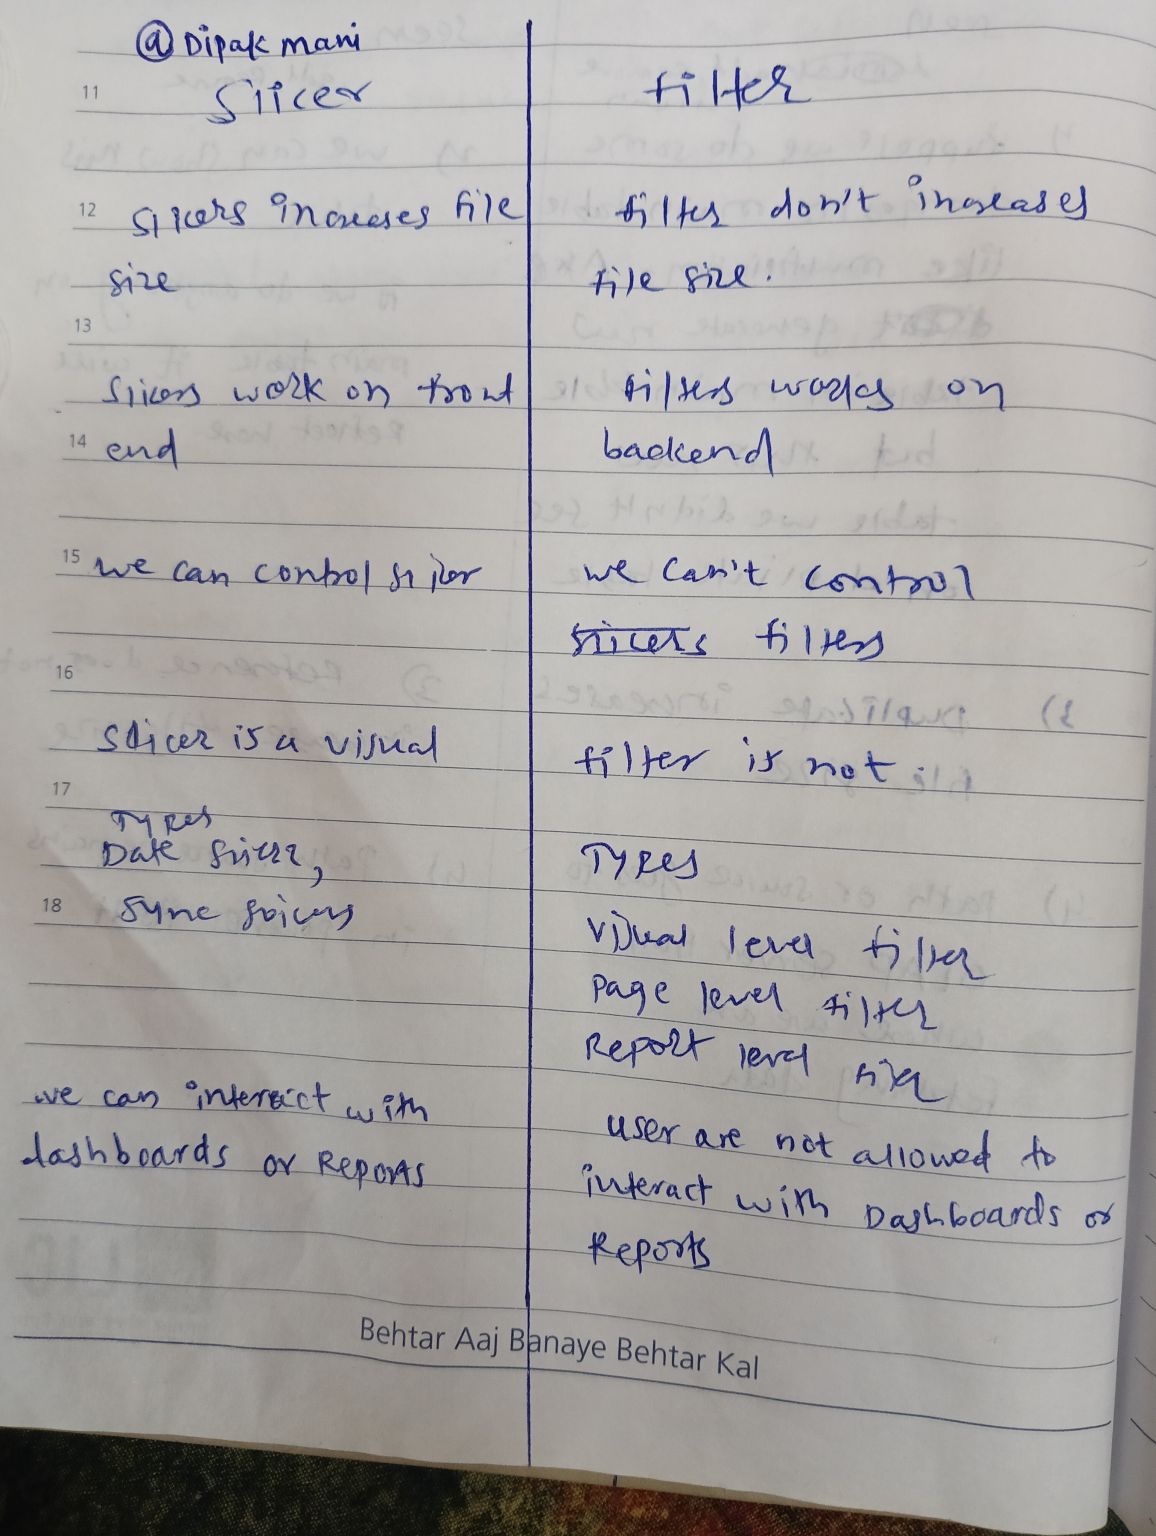 @Dipak mani
Slicer
filter
11
12
Slicers increases file
size
filter don't increases
file size.
13
Slicers work on front
14
end
filters works on
backend
15
we can control slicer
we can't control
slicers filters
16
Slicer is a visual
filter is not
17
Types
Date slicer,
18
Sync slicers
Types
Visual level filter
Page level filter
Report level filter
we can interact with
dashboards or Reports
user are not allowed to
interact with Dashboards or
Reports
Behtar Aaj Banaye Behtar Kal